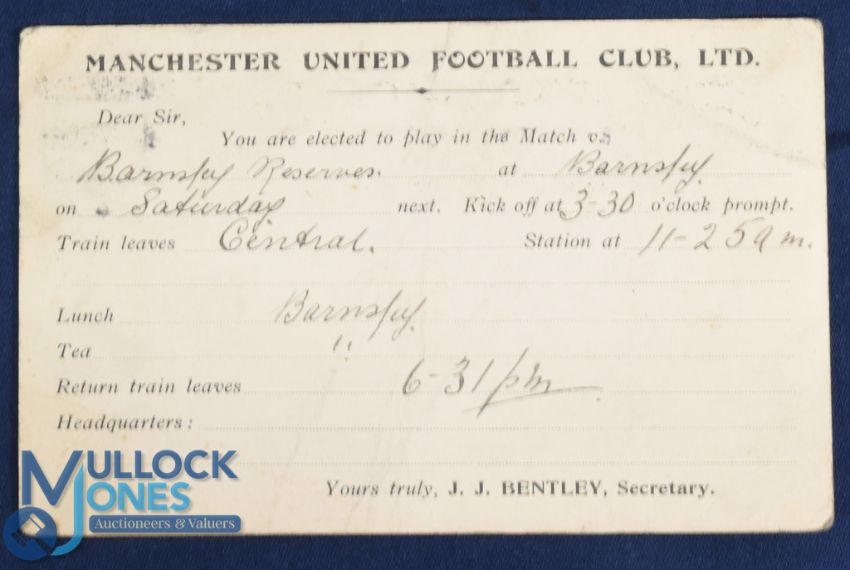 MANCHESTER UNITED FOOTBALL CLUB, LTD.
Dear Sir,
You are elected to play in the Match v.
Barnsley Reserves. at Barnsley.
on Saturday next. Kick off at 3-30 o'clock prompt.
Train leaves Central. Station at 11-25 a m.
Lunch Barnsley.
Tea "
Return train leaves 6-31 pm
Headquarters:
Yours truly, J. J. BENTLEY, Secretary.
MULLOCK
JONES
Auctioneers & Valuers